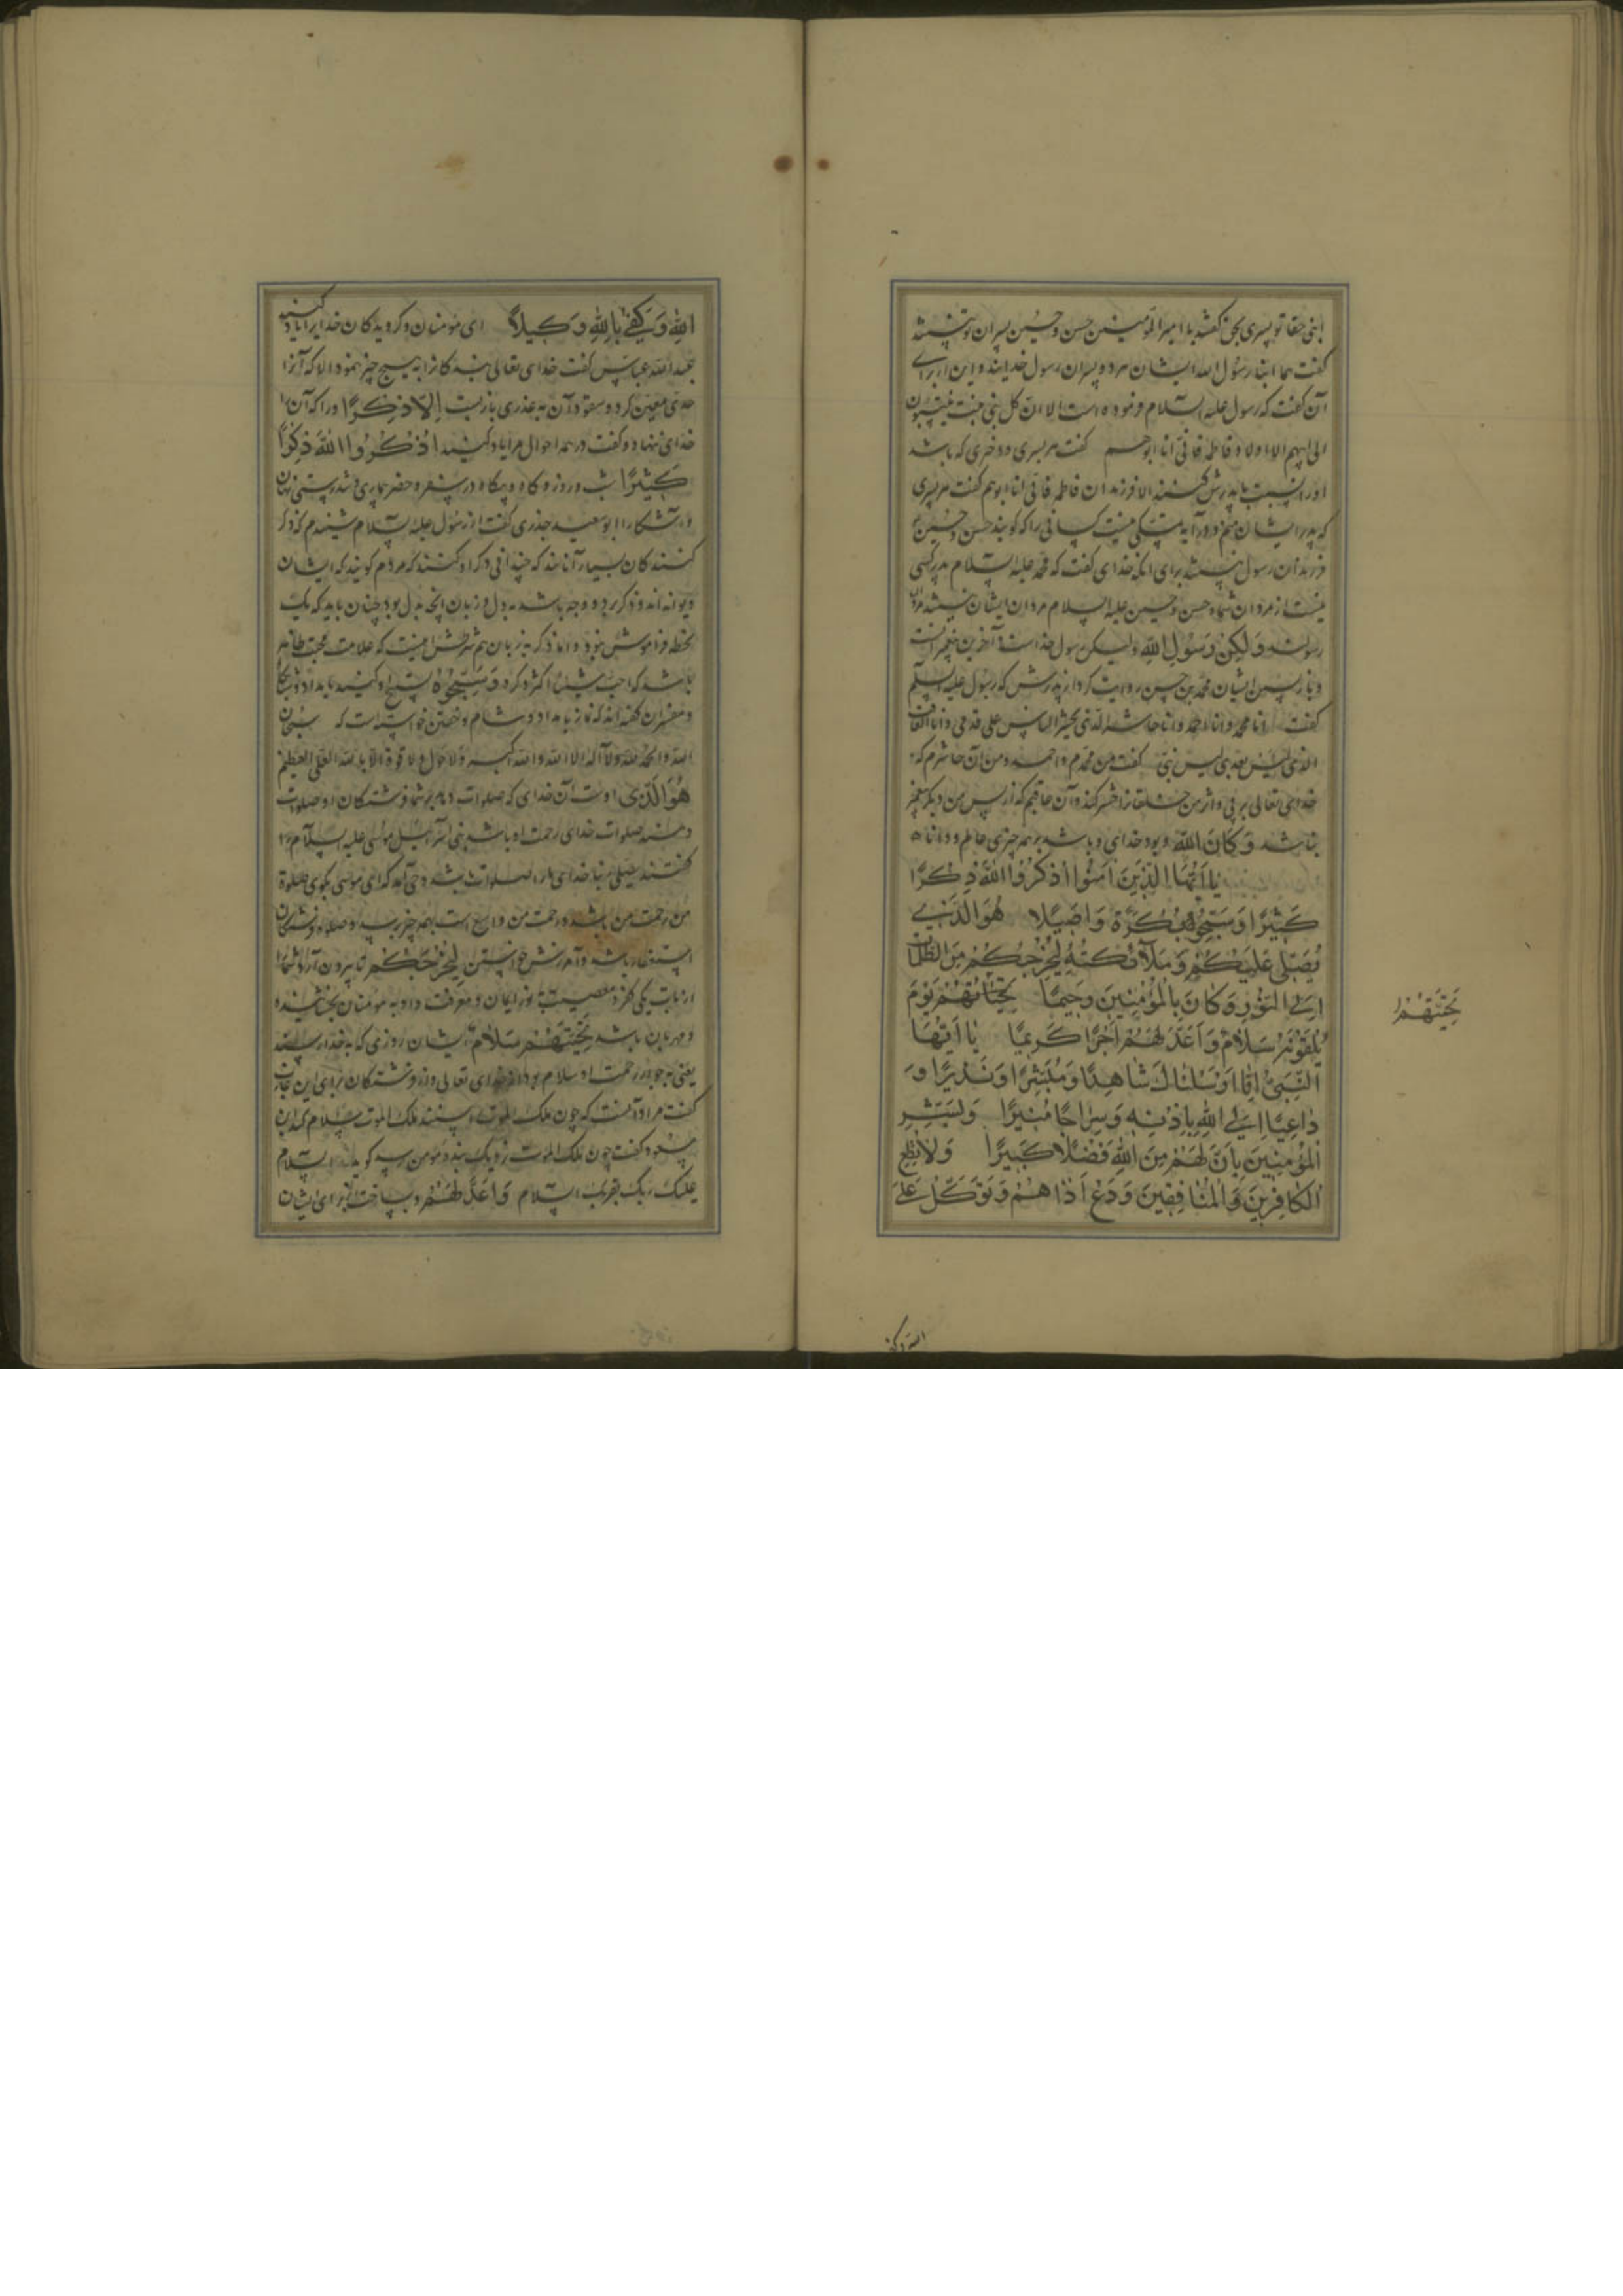 ابنی حقا تو پسری بحق گفتند یا امیرالمومنین حسن و حسین پسران تو نیستند
گفت هما ابنا رسول الله ایشان هر دو پسران رسول خدایند و این از برای
آن گفت که رسول علیه السلام فرموده است الا ان کل بنی بنت ینتسبون
الی ابیهم الا اولاد فاطمه فانی انا ابوهم گفت هر پسری و دختری که باشد
او را نسبت با پدرش کنند الا فرزندان فاطمه فانی انا ابوهم گفت هر پسری
که پدر ایشان منم و در آیه متمسکی نیست کسانی را که گویند حسن و حسین
فرزندان رسول نیستند برای آنکه خدای گفت که محمد علیه السلام پدر کسی
نیست از مردان شما و حسن و حسین علیه السلام مردان ایشان نیستند مردان
رسولند وَلَكِنْ رَسُولَ اللهِ ولیکن رسول خداست و آخرین پیغمبرانست
و بازپسین ایشان محمد بن حسین روایت کرد از پدرش که رسول علیه السلم
گفت انا محمد وانا احمد وانا حاشر الذی یحشر الناس علی قدمی وانا العاقب
الذی لیس بعدی لیس نبی گفت من محمدم و احمد و من آن حاشرم که
خدای تعالی بر پی و اثر من خلقانرا حشر کند و آن عاقبم که از پس من دیگر پیغمبر
نباشد وَكَانَ اللهُ و بود خدای و باشد بر همه چیزی عالم و دانا
يَا أَيُّهَا الَّذِينَ آمَنُوا اذْكُرُوا اللهَ ذِكْرًا
كَثِيْرًا وَسَبِّحُوهُ بُكْرَةً وَاَصِيْلًا هُوَ الَّذِي
يُصَلِّي عَلَيْكُمْ وَمَلَآئِكَتُهُ لِيُخْرِجَكُمْ مِنَ الظُّلُمَاتِ
اِلَى النُّوْرِ وَكَانَ بِالْمُؤْمِنِيْنَ رَحِيْمًا تَحِيَّتُهُمْ يَوْمَ
يَلْقَوْنَهُ سَلَامٌ وَاَعَدَّ لَهُمْ اَجْرًا كَرِيْمًا يَا اَيُّهَا
النَّبِيُّ اِنَّا اَرْسَلْنَاكَ شَاهِدًا وَمُبَشِّرًا وَنَذِيْرًا وَ
دَاعِيًا اِلَى اللهِ بِاِذْنِهِ وَسِرَاجًا مُنِيْرًا وَبَشِّرِ
الْمُؤْمِنِيْنَ بِاَنَّ لَهُمْ مِنَ اللهِ فَضْلًا كَبِيْرًا وَلَا تُطِعِ
الْكَافِرِيْنَ وَالْمُنَافِقِيْنَ وَدَعْ اَذَاهُمْ وَتَوَكَّلْ عَلَى
تَحِيَّتُهُمْ
الله وکفی
اللهِ وَكَفَى بِاللهِ وَكِيلًا ای مؤمنان و گرویدگان خدایرا یاد کنید
عبدالله عباس گفت خدای تعالی بندگانرا به هیچ چیز نفرمود الا که آنرا
حدی معین کرد و سقوط آن به عذری باز بست اِلَّا ذِكْرًا و را که آنرا
خدای ننهاد و گفت در همه احوال مرا یاد کنید اُذْكُرُوا اللهَ ذِكْرًا
كَثِيْرًا شب و روز و گاه و بیگاه در سفر و حضر بیماری و تندرستی نهان
و آشکارا ابوسعید خدری گفت از رسول علیه السلام شنیدم که ذکر
کنندگان بسیار آنانند که چندانی ذکر او کنند که مردم گویند که ایشان
دیوانه اند و ذکر بر دو وجه باشد به دل و زبان آنچه بدل بود چنان باید که یک
لحظه فراموش نبود و اما ذکر به زبان هم شرطش اینست که علامت محبت ظاهر
باشد که احب شیئا اکثر ذکره وَسَبِّحُوهُ تسبیح او کنید بامداد و شبانگاه
و مفسران گفته اند که نماز بامداد و شام و خفتن خواسته است که سبحان
الله والحمد لله ولا اله الا الله والله اکبر ولا حول ولا قوة الا بالله العلی العظیم
هُوَ الَّذِی اوست آن خدای که صلوات دهد بر شما و فرشتگان او صلوات
دهند صلوات خدای رحمت او باشد بنی اسرائیل موسی علیه السلام را
گفتند یصلی ربنا خدای ما را صلوات باشد وحی آمد که ای موسی بگوی صلوة
من رحمت من باشد و رحمت من واسع است بهمه چیز برسد و صلوة فرشتگان
استغفار باشد و آمرزش خواستن لِيُخْرِجَكُمْ تا بیرون آرد شما را
از تاریکی کفر و معصیت به نور ایمان و معرفت و او به مومنان بخشاینده
و مهربان باشد تَحِيَّتُهُمْ سَلَامٌ ایشان روزی که به خدا رسند
یعنی به جوار رحمت او سلام بود از خدای تعالی و از فرشتگان برای ابن عازب
گفت مراد آنست که چون ملک الموت رسند ملک الموت سلام کند ابن
مسعود گفت چون ملک الموت نزدیک بنده مومن رسد گوید السلام
علیک ربک یقریک السلام وَاَعَدَّ لَهُمْ و بساخت از برای ایشان